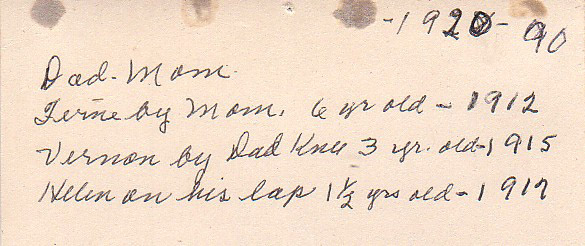 -1920- 90
Dad-Mom
Ferne by Mom. 6 yr old - 1912
Vernon by Dad Knee 3 yr. old-1915
Helen on his lap 1½ yrs old-1917